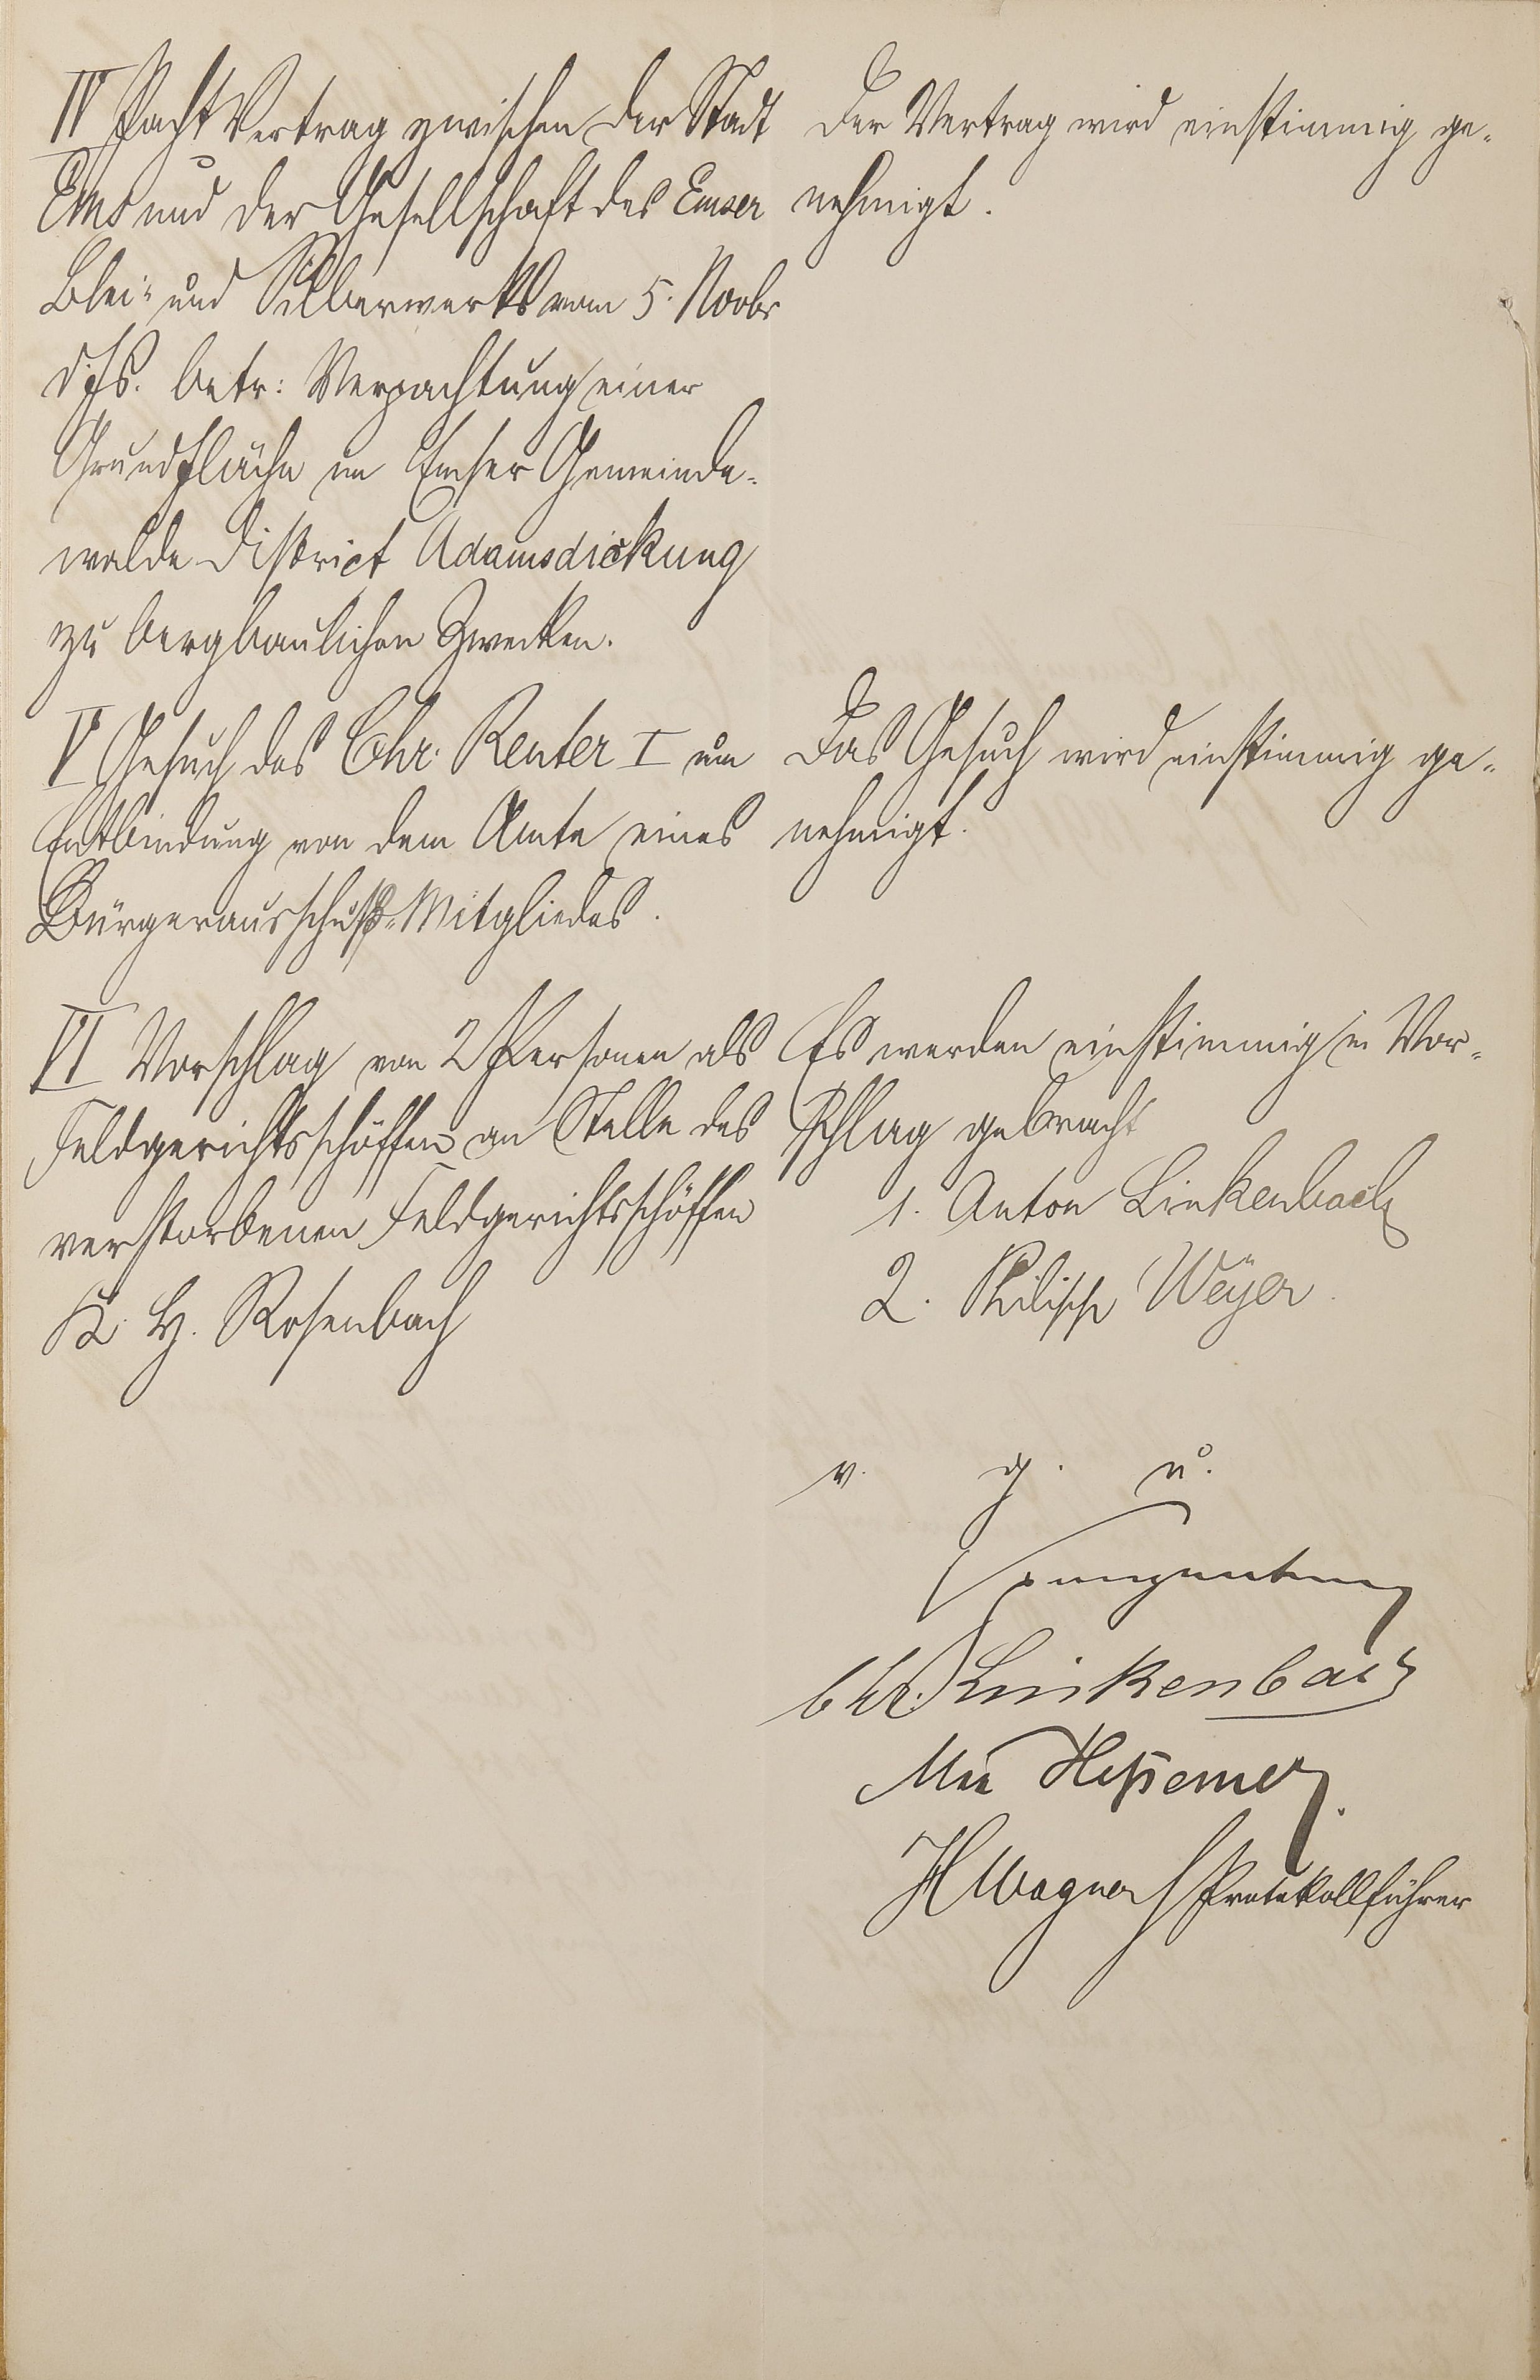 IV Pacht Vertrag zwischen der Stadt
Ems und der Gesellschaft des Emser
Blei- und Silberwerks vom 5. Novbr
d. Js. betr: Verpachtung einer
Grundfläche im Emser Gemeinde-
walde District Adamsdickung
zu bergbaulichen Zwecken.
Der Vertrag wird einstimmig ge-
nehmigt.
V Gesuch des Chr. Reuter I um
Entbindung von dem Amte eines
Bürgerausschuß-Mitgliedes.
Das Gesuch wird einstimmig ge-
nehmigt.
VI Vorschlag von 2 Personen als
Feldgerichtsschöffen an Stelle des
verstorbenen Feldgerichtsschöffen
K. H. Rosenbach
Es werden einstimmig in Vor-
schlag gebracht
1. Anton Linkenbach
2. Philipp Weyer.
v. g. u.
Chr. Linkenbach
Heßemer.
H Wagner Protokollführer